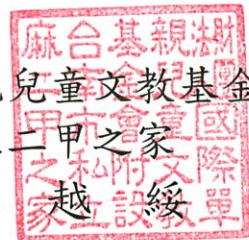 兒童文教基金
二甲之家
越綏
國際單
親兒童文教
基金會附設
台南市私立
麻二甲之家